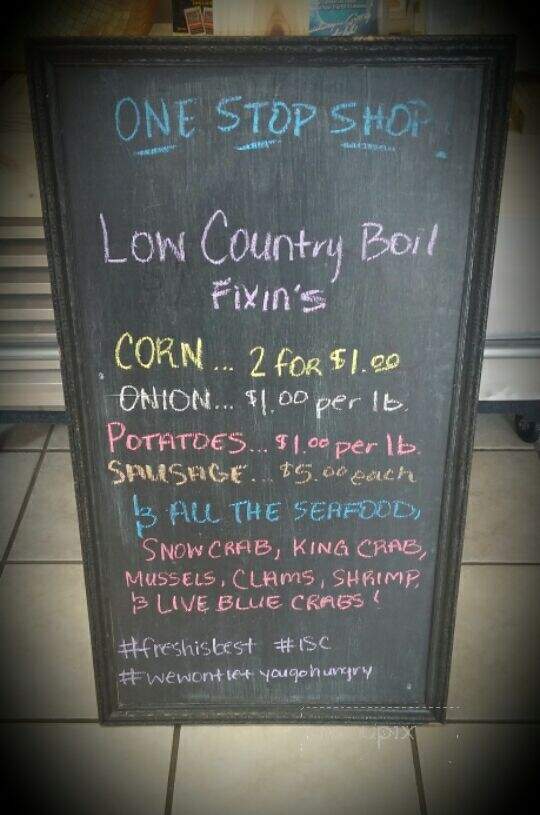 ONE STOP SHOP.
LOW COUNTRY BOIL
FIXIN'S
CORN... 2 FOR $1.00
ONION... $1.00 per lb.
POTATOES... $1.00 per lb.
SAUSAGE... $5.00 each
& ALL THE SEAFOOD,
SNOW CRAB, KING CRAB,
MUSSELS, CLAMS, SHRIMP,
& LIVE BLUE CRABS!
#freshisbest #ISC
#wewontletyougohungry